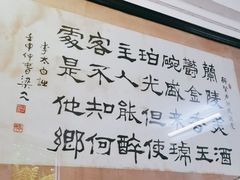 蘭陵美酒
鬱金香玉
碗盛來琥
珀光但使
主人能醉
客不知何
處是他鄉
李太白詩
壬申仲春梁